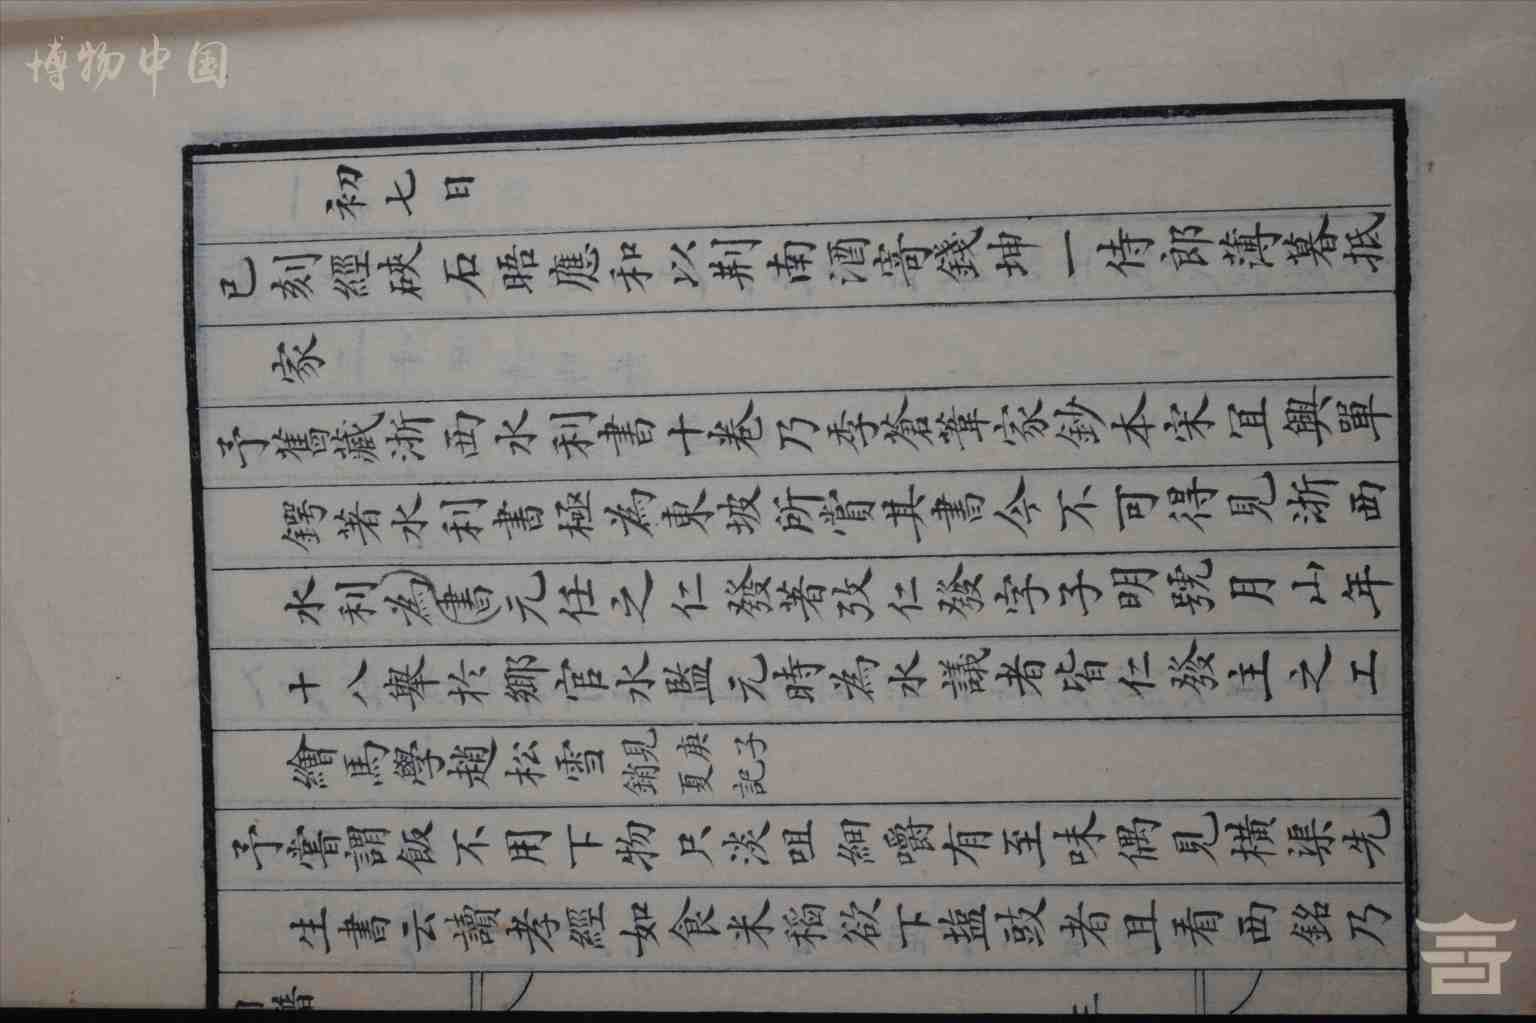 博物中国
初七日
已刻經硤石晤應和以荆南酒寄錢坤一侍郎薄暮抵
家
予舊藏浙西水利書十卷乃季蒼葦家鈔本宋宜興單
鍔著水利書極為東坡所賞其書今不可得見浙西
水利為書元任之仁發著攷仁發字子明號月山年
十八舉於鄉官水監元時為水議者皆仁發主之工
繪馬學趙松雪
見庚子
銷夏記
予嘗謂飯不用下物只淡咀細嚼有至味偶見橫渠先
生書云讀孝經如食米稻欲下塩豉者且看西銘乃